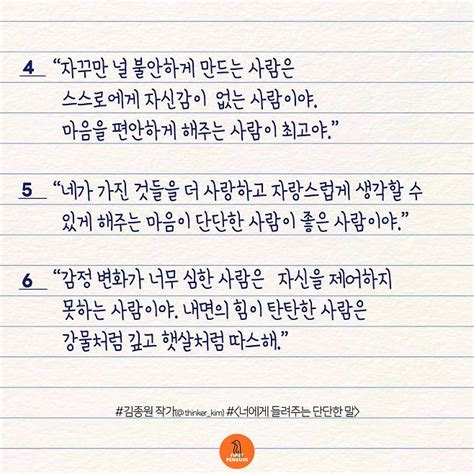 4 “자꾸만 널 불안하게 만드는 사람은
스스로에게 자신감이 없는 사람이야.
마음을 편안하게 해주는 사람이 최고야.”
5 “네가 가진 것들을 더 사랑하고 자랑스럽게 생각할 수
있게 해주는 마음이 단단한 사람이 좋은 사람이야.”
6 “감정 변화가 너무 심한 사람은 자신을 제어하지
못하는 사람이야. 내면의 힘이 탄탄한 사람은
강물처럼 깊고 햇살처럼 따스해.”
#김종원 작가(@thinker_kim) #<너에게 들려주는 단단한 말>
FIRST
PENGUIN